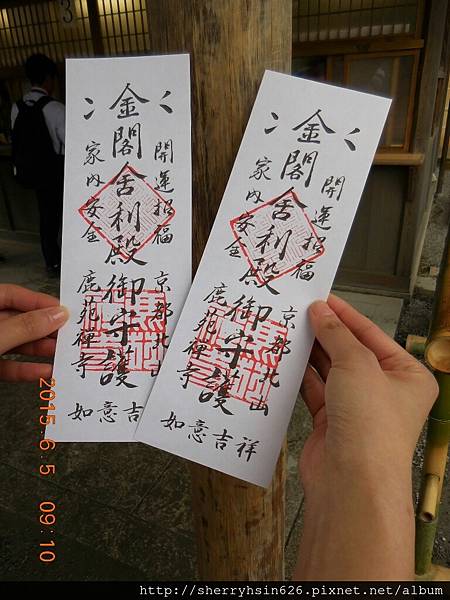 3
金閣舍利殿御守護
開運招福
家内安全
京都北山
鹿苑禅寺
如意吉
金閣舍利殿御守護
開運招福
家内安全
京都北山
鹿苑禅寺
如意吉祥
2015.6.5 09:10
http://sherryhsin626.pixnet.net/album